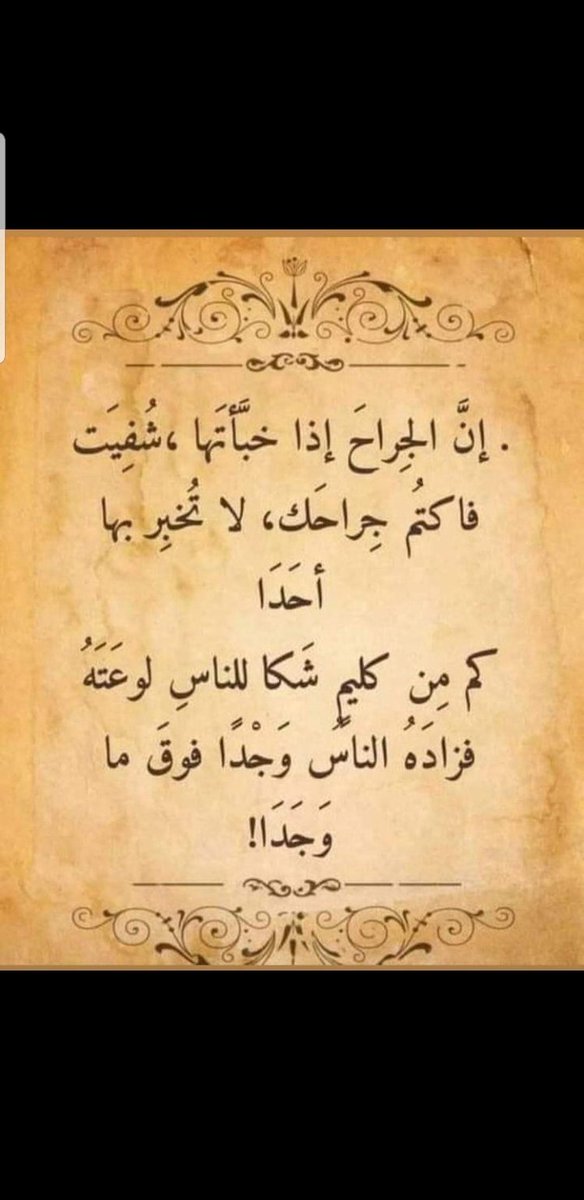 . إنَّ الجِراحَ إذا خبَّأتَها ،شُفِيَت
فاكتُم جِراحَك، لا تُخبِر بها
أحَدَا
كم مِن كليمٍ شَكا للناسِ لوعَتَهُ
فزادَهُ الناسُ وَجْدًا فوقَ ما
وَجَدَا!